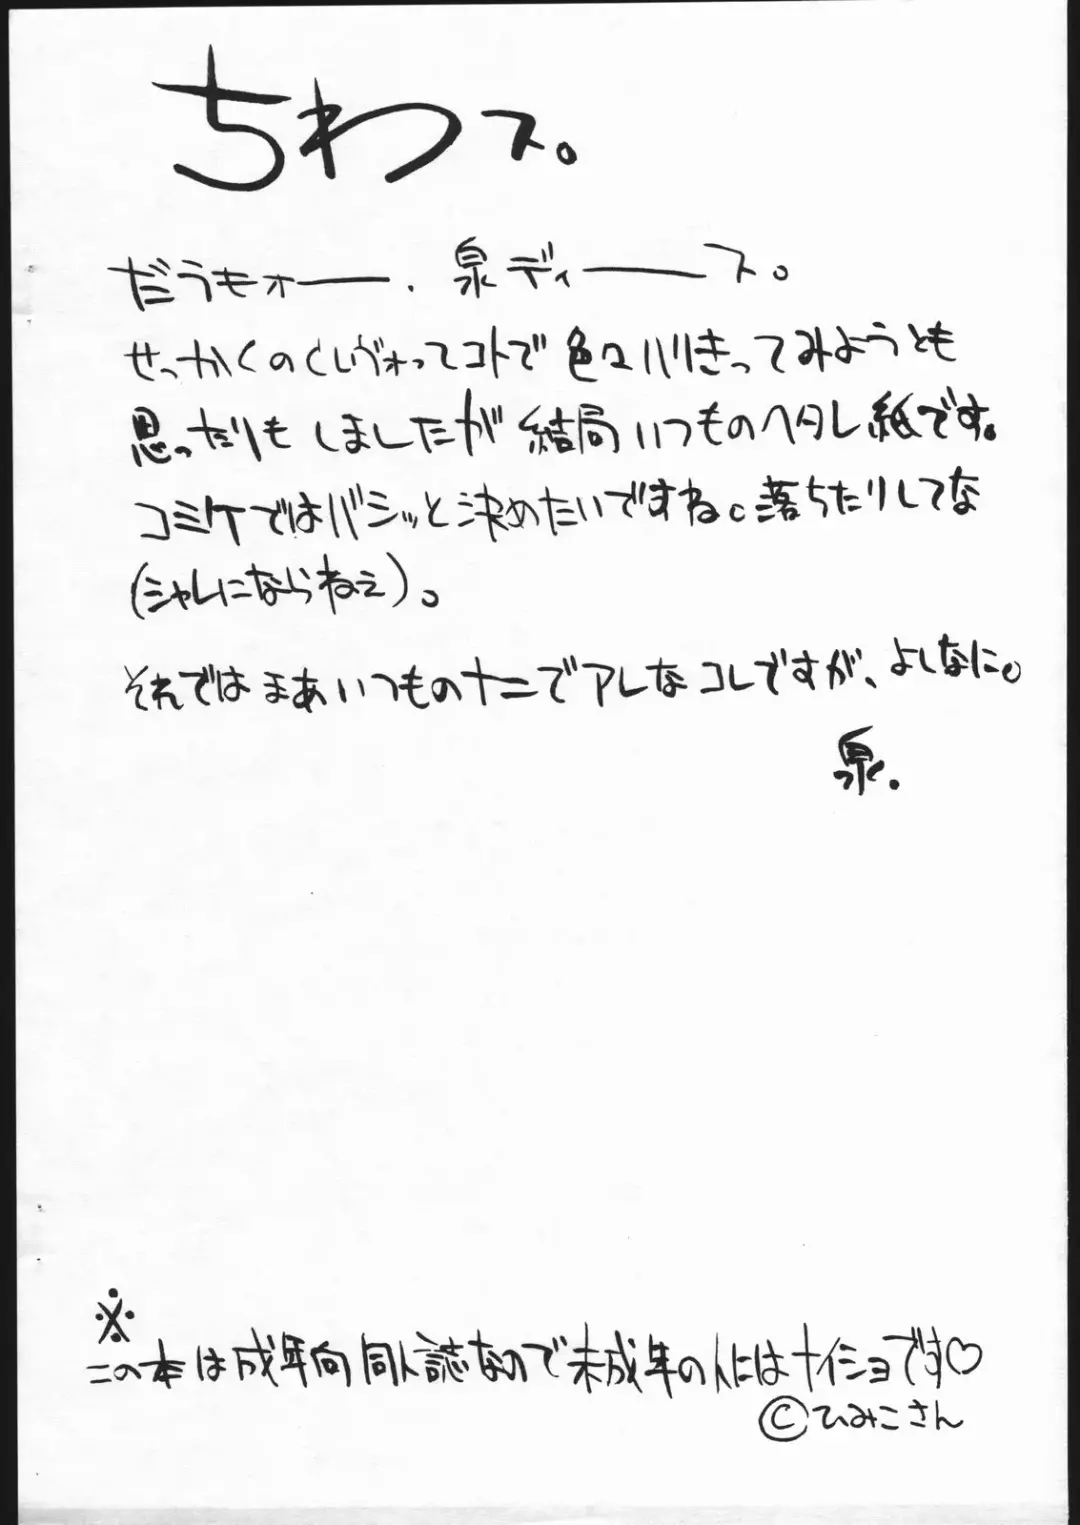 ちわス。
だうもォー. 泉ディース。
せっかくのくしヴォってコトで色々ハリきってみようとも
思っだりもしましたが結局いつものヘタレ紙です。
コミケではバシッと決めたいですね。落ちたりしてな
(シャレにならねえ)。
それではまあいつものナニでアレなコレですが、よしなに。
泉.
※
この本は成年向同人誌なので未成年の人にはナイショです♡
©ひみこさん